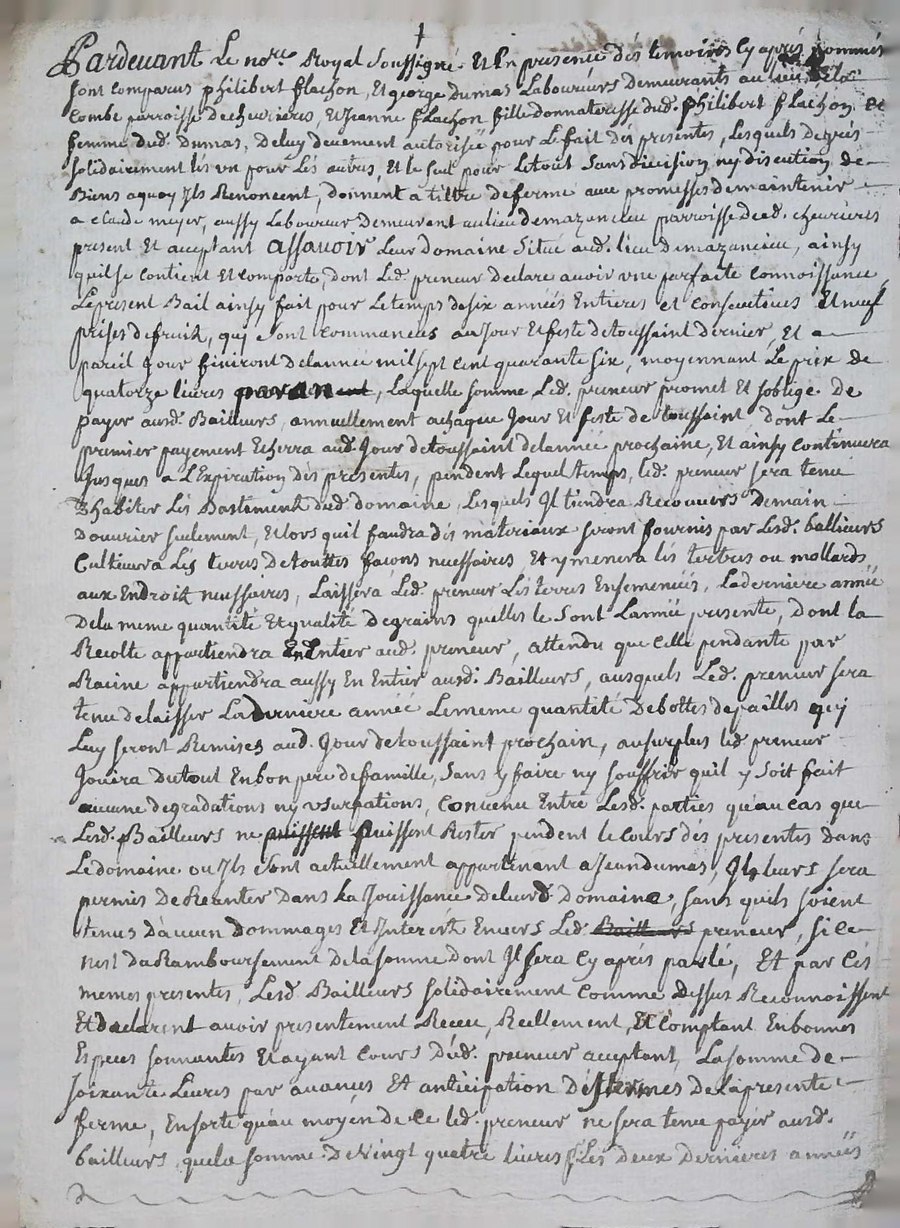 Pardevant Le nore Royal Soussigné Et En presence des temoins Cy aprés nommés
sont comparus philibert flachon, Et george dumas Laboureurs Demeurants au lieu
Combe parroisse de chevrieres, Et Jeanne flachon fille donnateresse dud. philibert flachon, Et
femme dud. dumas, de luy deuement autorisée pour Le fait des presentes, Lesquels degrés
Solidairement Les un pour Les autres, Et le seul pour Le tout Sans division ny discution de
Biens aquoy Ils Renoncent, donnent a tiltre de ferme avec promesses de maintenir
a claude meyer, aussy Laboureur Demeurant au lieu de mazancieu parroisse dud. chevrieres
present Et acceptant Assavoir Leur Domaine Situé aud. lieu de mazancieu, ainsy
quil se contient Et comporte, dont Led. preneur declare avoir une parfaite Connoissance
Le present Bail ainsy fait pour Le temps de six années Entieres et consecutives Et neuf
prises de fruit, qui sont commancées au Jour Et feste de toussaint dernier, Et a
pareil Jour finiront de lannée mil sept cent quarante six, moyennant Le prix de
quatorze livres par an, Laquelle somme Led. preneur promet Et soblige de
payer ausd. Bailleurs, annuellement a chaque Jour Et feste de toussaint dont Le
premier payement Echerra aud. Jour de toussaint de lannée prochaine, Et ainsy continuera
Jusques a L'Expiration des presentes, pendent Lequel temps, led. preneur sera tenu
d'habiter Les Bastement dud. domaine, Lesquels Il tiendra Recouvers Demain
Douvrier seulement, Et lors quil faudra des materiaux seront fournis par Lesd. ballieurs
Cultivera Les terres de touttes façons necessaires, Et y menera les tertres ou mollards
aux Endroit necessaires, Laissera Led. preneur Les terres Ensemencées, La derniere année
De la meme quantité Et qualité de grains quelles le Sont Lannée presente, dont la
Recolte appartiendra En Entier aud. preneur, attendu que Celle pendante par
Racine appartiendra aussy En Entier ausd. Bailleurs, ausquels Led. preneur sera
tenu de laisser La derniere année Le meme quantité De bottes de pailles qui
Luy seront Remises aud. Jour de toussaint prochain, au surplus led. preneur
Jouira du tout En bon pere de famille, Sans y faire ny souffrir quil y Soit fait
aucune degradations ny usurpations, Convenu Entre Lesd. parties qu'au cas que
Lesd. Bailleurs ne puissent puissent Rester pendent le cours des presentes dans
Le domaine ou Ils sont actuellement appartenant a Jean dumas, Il leurs sera
permis de Reentrer Dans La Jouissance de leurd. Domaine, sans quils soient
tenus d'aucun Dommages Et Interest Envers Led. Bailleurs preneur, si ce
nest du Ramboursement de la somme dont Il sera Cy aprés parlé, Et par Ces
memes presentes, Lesd. Bailleurs solidairement Comme dessus Reconnoissent
Et declarent avoir presentement Receu, Reellement, Et Comptant En bonnes
Especes sonnantes Et ayant Cours Dud. preneur acceptant, La somme de
soixante Livres par avances Et anticipation des termes de la presente
ferme, En sorte qu'au moyen de Ce led. preneur ne sera tenu payer ausd.
bailleurs que la somme de vingt quatre livres Les deux Dernieres années